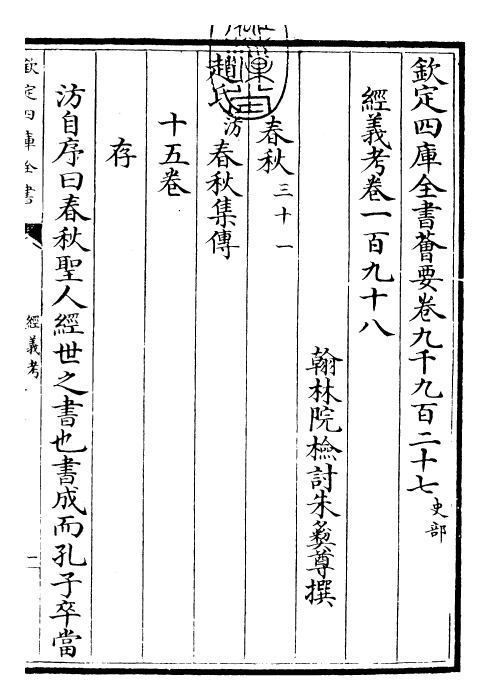 欽定四庫全書薈要卷九千九百二十七 史部
經義考卷一百九十八
翰林院檢討朱彝尊撰
春秋 三十一
趙氏 汸 春秋集傳
十五卷
存
汸自序曰春秋聖人經世之書也書成而孔子卒當
欽定四庫全書
經義考